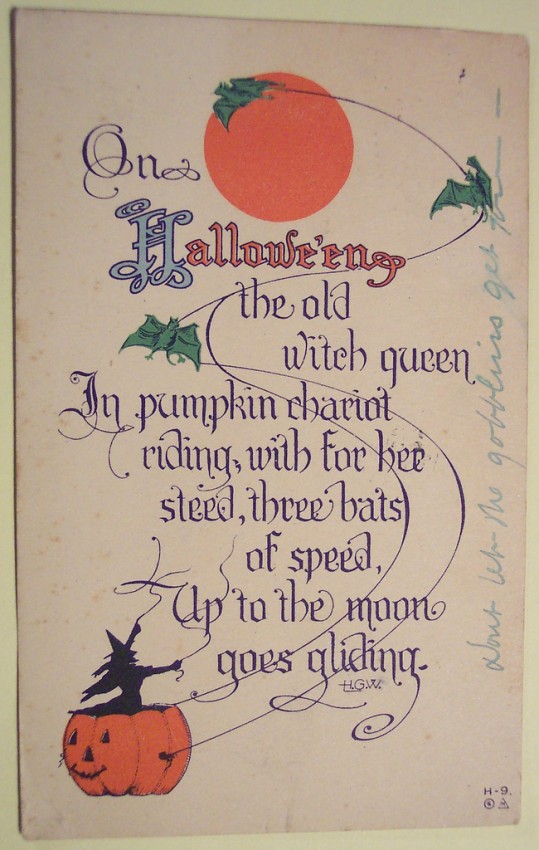 On
Hallowe'en
the old
witch queen
In pumpkin chariot
riding, with for her
steed, three bats
of speed,
Up to the moon
goes gliding.
H.G.W.
dont let the gobblins get you —
H-9.
©